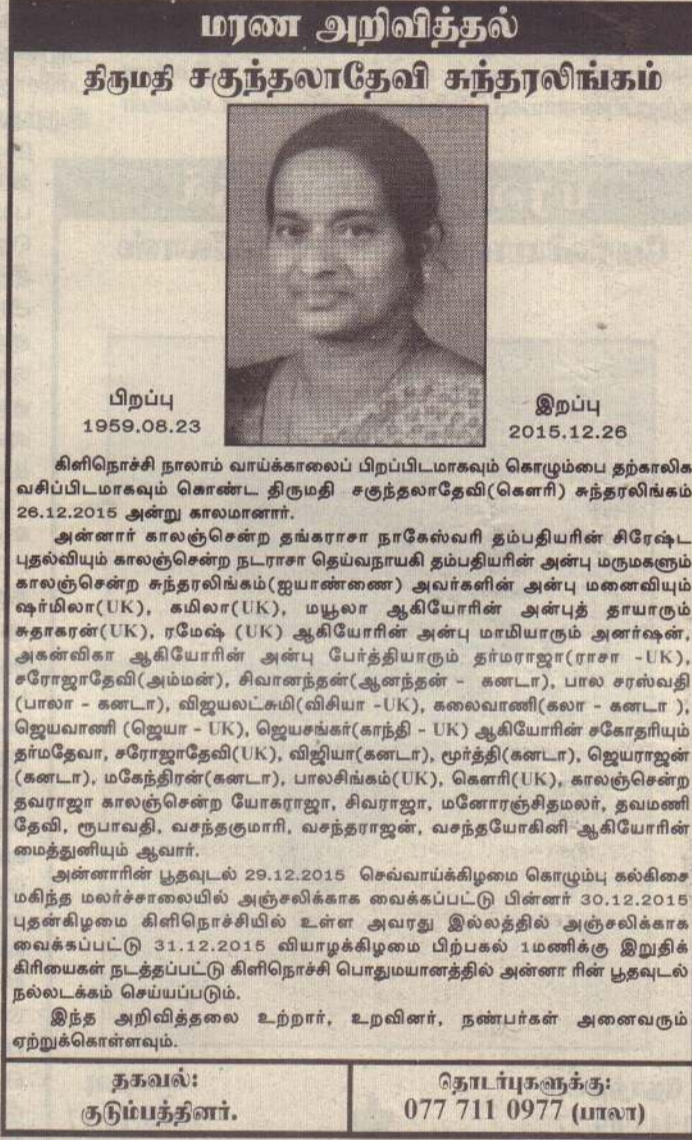 மரண அறிவித்தல்
திருமதி சகுந்தலாதேவி சுந்தரலிங்கம்
பிறப்பு
1959.08.23
இறப்பு
2015.12.26
கிளிநொச்சி நாலாம் வாய்க்காலைப் பிறப்பிடமாகவும் கொழும்பை தற்காலிக
வசிப்பிடமாகவும் கொண்ட திருமதி சகுந்தலாதேவி(கௌரி) சுந்தரலிங்கம்
26.12.2015 அன்று காலமானார்.
அன்னார் காலஞ்சென்ற தங்கராசா நாகேஸ்வரி தம்பதியரின் சிரேஷ்ட
புதல்வியும் காலஞ்சென்ற நடராசா தெய்வநாயகி தம்பதியரின் அன்பு மருமகளும்
காலஞ்சென்ற சுந்தரலிங்கம்(ஐயாண்ணை) அவர்களின் அன்பு மனைவியும்
ஷர்மிலா(UK), கமிலா(UK), மயூலா ஆகியோரின் அன்புத் தாயாரும்
சுதாகரன்(UK), ரமேஷ் (UK) ஆகியோரின் அன்பு மாமியாரும் அனர்ஷன்,
அகன்விகா ஆகியோரின் அன்பு பேர்த்தியாரும் தர்மராஜா(ராசா -UK),
சரோஜாதேவி(அம்மன்), சிவானந்தன்(ஆனந்தன் - கனடா), பால சரஸ்வதி
(பாலா - கனடா), விஜயலட்சுமி(விசியா -UK), கலைவாணி(கலா - கனடா ),
ஜெயவாணி (ஜெயா - UK), ஜெயசங்கர்(காந்தி - UK) ஆகியோரின் சகோதரியும்
தர்மதேவா, சரோஜாதேவி(UK), விஜியா(கனடா), மூர்த்தி(கனடா), ஜெயராஜன்
(கனடா), மகேந்திரன்(கனடா), பாலசிங்கம்(UK), கௌரி(UK), காலஞ்சென்ற
தவராஜா காலஞ்சென்ற யோகராஜா, சிவராஜா, மனோரஞ்சிதமலர், தவமணி
தேவி, ரூபாவதி, வசந்தகுமாரி, வசந்தராஜன், வசந்தயோகினி ஆகியோரின்
மைத்துனியும் ஆவார்.
அன்னாரின் பூதவுடல் 29.12.2015 செவ்வாய்க்கிழமை கொழும்பு கல்கிசை
மகிந்த மலர்ச்சாலையில் அஞ்சலிக்காக வைக்கப்பட்டு பின்னர் 30.12.2015
புதன்கிழமை கிளிநொச்சியில் உள்ள அவரது இல்லத்தில் அஞ்சலிக்காக
வைக்கப்பட்டு 31.12.2015 வியாழக்கிழமை பிற்பகல் 1மணிக்கு இறுதிக்
கிரியைகள் நடத்தப்பட்டு கிளிநொச்சி பொதுமயானத்தில் அன்னா ரின் பூதவுடல்
நல்லடக்கம் செய்யப்படும்.
இந்த அறிவித்தலை உற்றார், உறவினர், நண்பர்கள் அனைவரும்
ஏற்றுக்கொள்ளவும்.
தகவல்:
குடும்பத்தினர்.
தொடர்புகளுக்கு:
077 711 0977 (பாலா)